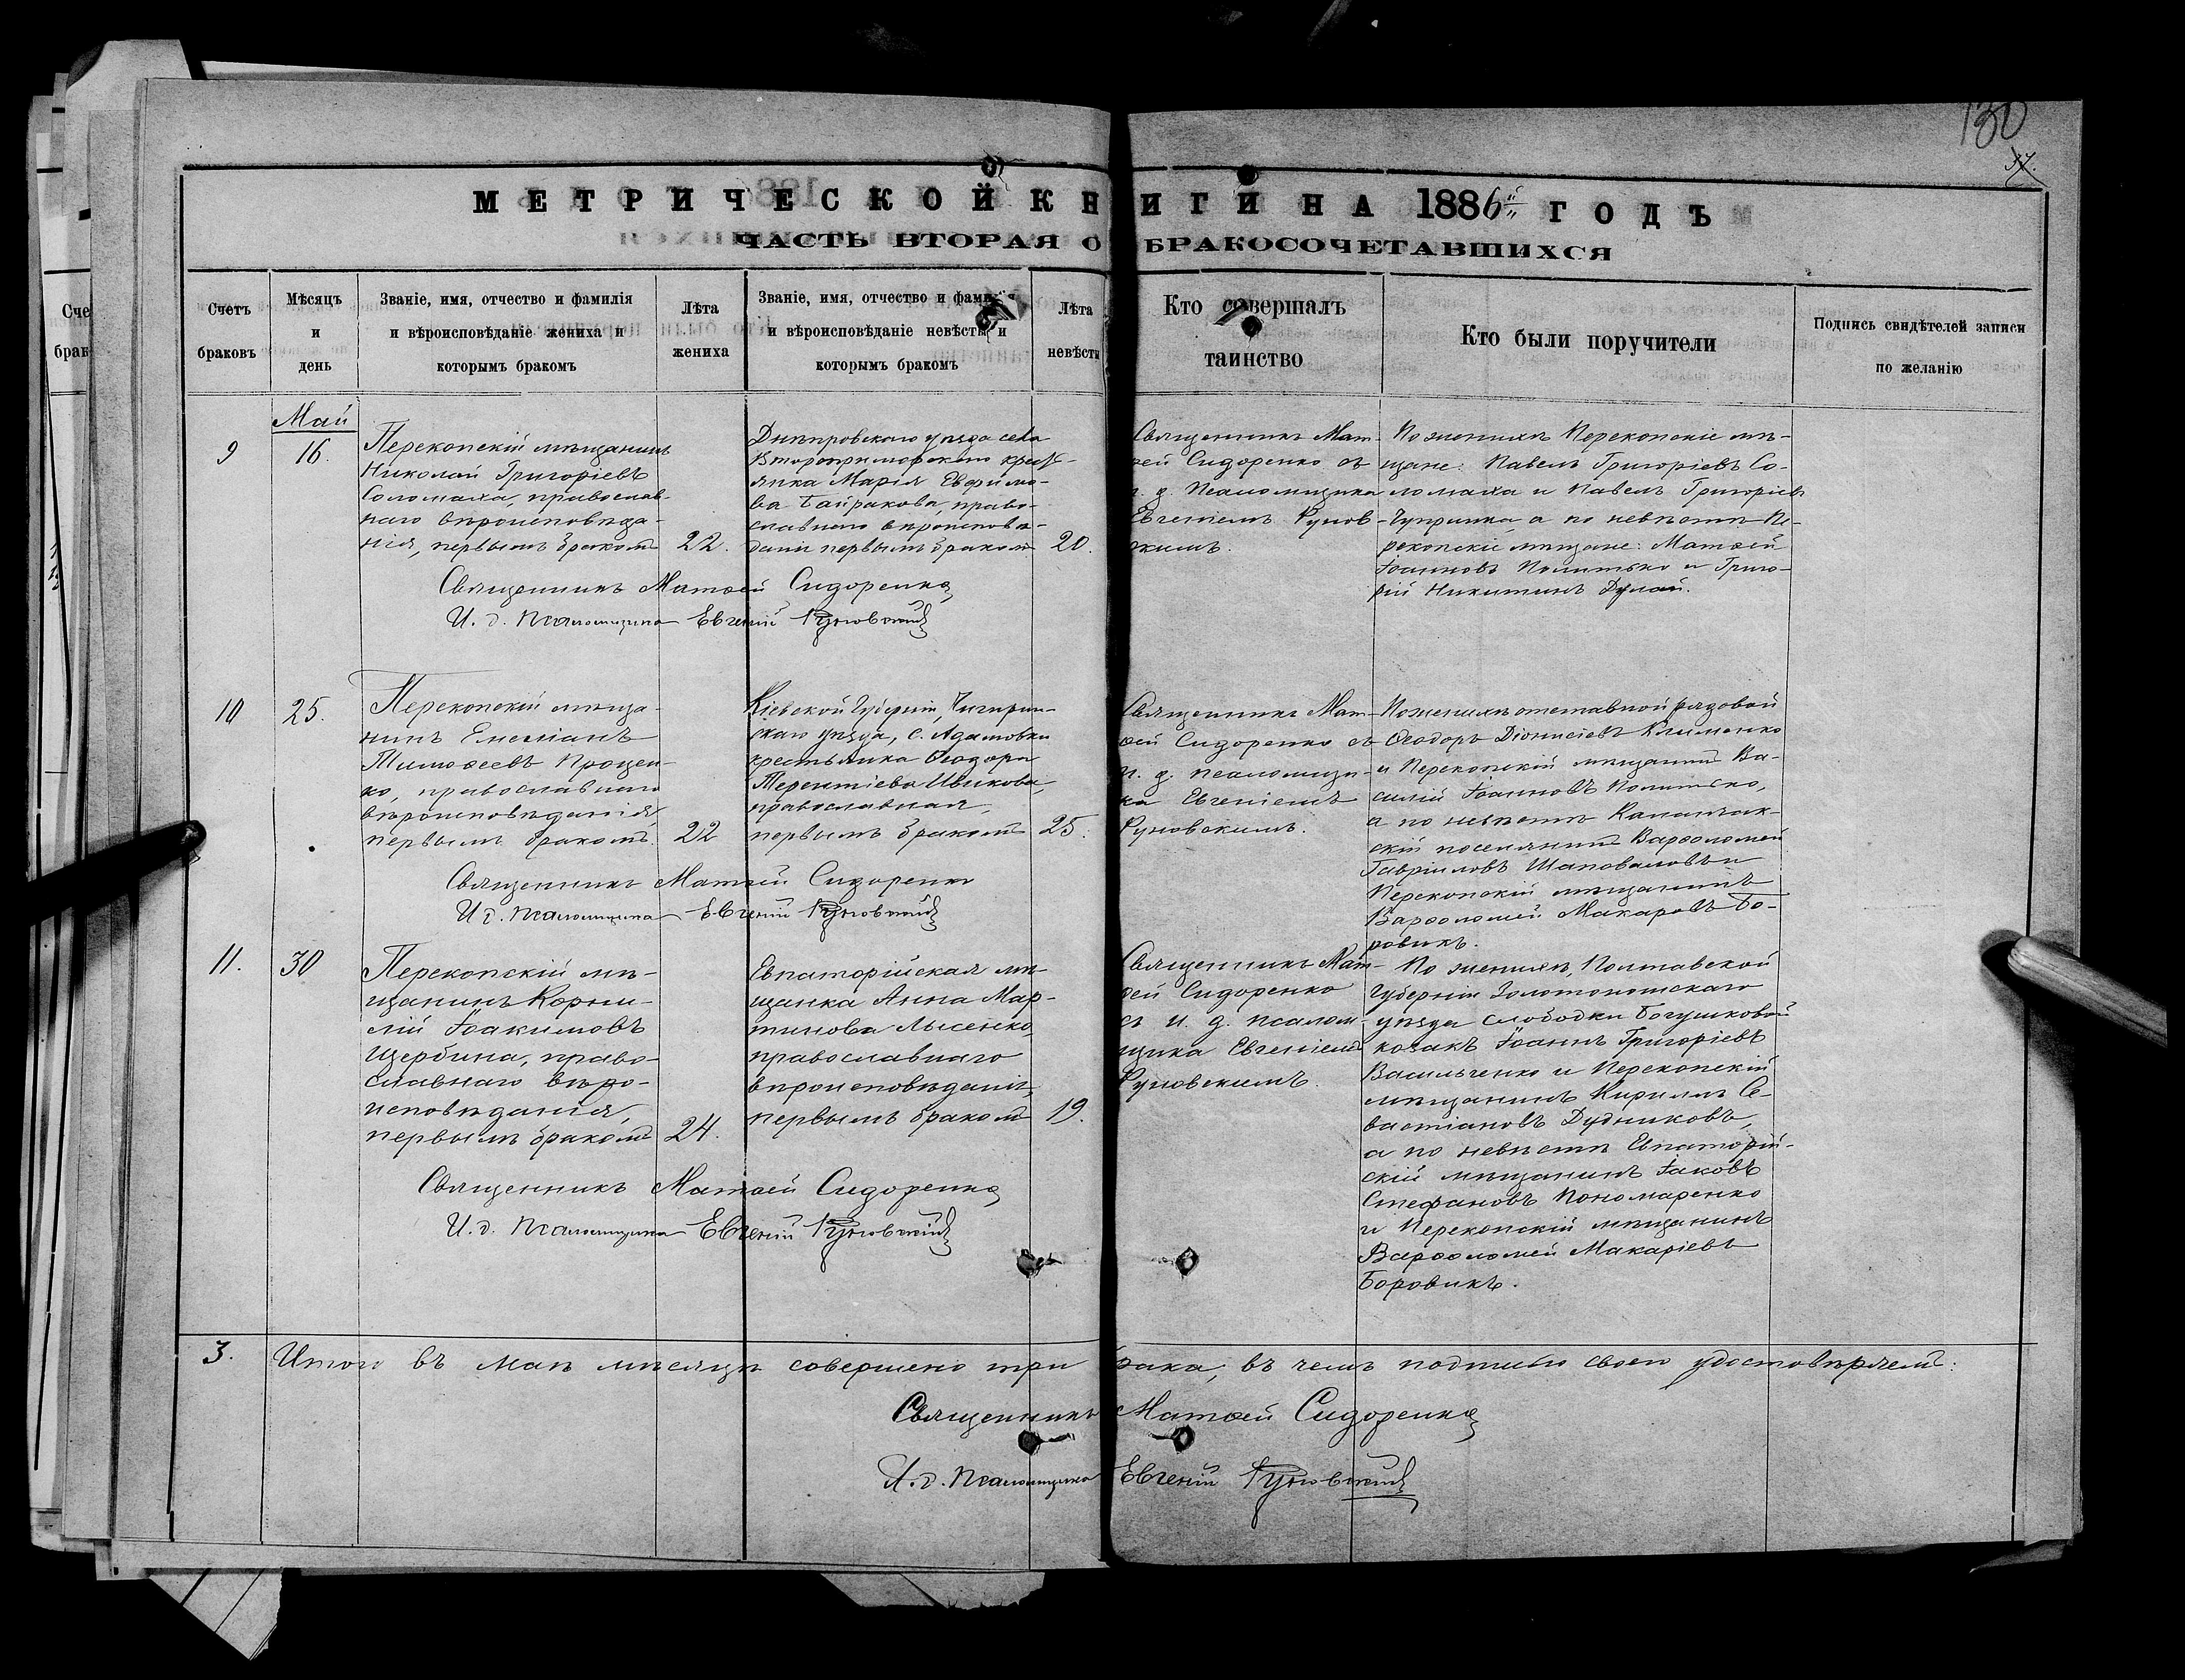 130
37.
МЕТРИЧЕСКОЙ КНИГИ НА 1886й ГОДЪ
ЧАСТЬ ВТОРАЯ О БРАКОСОЧЕТАВШИХСЯ
Счетъ
браковъ
Мѣсяцъ
и
день
Званіе, имя, отчество и фамилія
и вѣроисповѣданіе жениха и
которымъ бракомъ
Лѣта
жениха
Званіе, имя, отчество и фамилія
и вѣроисповѣданіе невѣсты и
которымъ бракомъ
Лѣта
невѣсты
Кто совершалъ
таинство
Кто были поручители
Подпись свидѣтелей записи
по желанію
Май
9
16.
Перекопскій мѣщанинъ
Николай Григоріевъ
Соломаха, православ-
наго вѣроисповѣда-
нія, первымъ бракомъ
22.
Днѣпровскаго уѣзда села
Второприморскаго кресть-
янка Марія Евфимо-
ва Байракова, право-
славнаго вѣроисповѣ-
данія первымъ бракомъ
20.
Священникъ Мат-
ѳей Сидоренко съ
и. д. Псаломщика
Евгеніемъ Рунов-
скимъ.
По женихѣ Перекопскіе мѣ-
щане: Павелъ Григоріевъ Со-
ломаха и Павелъ Григоріевъ
Чупринка, а по невѣстѣ Пе-
рекопскіе мѣщане: Матѳей
Іоанновъ Политько и Григо-
рій Никитинъ Дунай.
Священникъ Матѳей Сидоренко
И. д. Псаломщика Евгеній Руновскій
10
25.
Перекопскій мѣща-
нинъ Емеліанъ
Тимоѳеевъ Процен-
ко, православнаго
вѣроисповѣданія,
первымъ бракомъ.
22
Кіевской Губерніи, Чигирин-
скаго уѣзда, с. Адамовки
крестьянка Ѳеодора
Терентіева Ивикова,
православная,
первымъ бракомъ
25.
Священникъ Мат-
ѳей Сидоренко съ
и. д. псаломщи-
ка Евгеніемъ
Руновскимъ.
По женихѣ отставной рядовой
Ѳеодоръ Діонисіевъ Клименко
и Перекопскій мѣщанинъ Ва-
силій Іоанновъ Политько,
а по невѣстѣ Каланчак-
скій поселянинъ Варѳоломей
Гавріиловъ Шаповаловъ и
Перекопскій мѣщанинъ
Варѳоломей Макаровъ Бо-
ровикъ.
Священникъ Матѳей Сидоренко
И. д. Псаломщика Евгеній Руновскій
11.
30
Перекопскій мѣ-
щанинъ Корни-
лій Іоакимовъ
Щербина, право-
славнаго вѣро-
исповѣданія,
первымъ бракомъ
24.
Евпаторійская мѣ-
щанка Анна Мар-
тинова Лысенко,
православнаго
вѣроисповѣданія,
первымъ бракомъ
19.
Священникъ Мат-
ѳей Сидоренко
съ и. д. псалом-
щика Евгеніемъ
Руновскимъ.
По женихѣ, Полтавской
Губерніи Золотоношскаго
уѣзда слободки Богушковой
козакъ Іоаннъ Григоріевъ
Васильченко и Перекопскій
мѣщанинъ Кириллъ Се-
вастіановъ Дудниковъ,
а по невѣстѣ Евпаторій-
скій мѣщанинъ Іаковъ
Стефановъ Пономаренко
и Перекопскій мѣщанинъ
Варѳоломей Макаріевъ
Боровикъ.
Священникъ Матѳей Сидоренко
И. д. Псаломщика Евгеній Руновскій
3.
Итого въ маѣ мѣсяцѣ совершено три брака, въ чемъ подписью своею удостовѣряемъ:
Священникъ Матѳей Сидоренко
И. д. Псаломщика Евгеній Руновскій